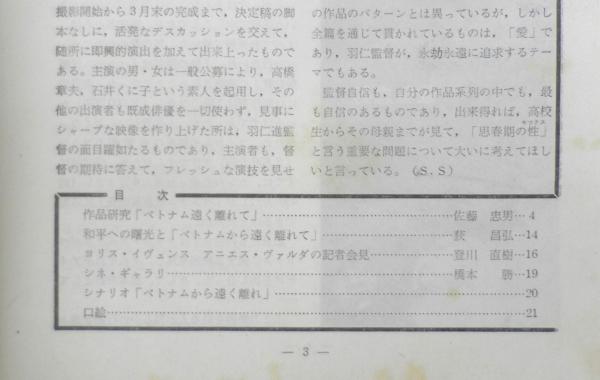 撮影開始から3月末の完成まで，決定稿の脚
本なしに，活発なデスカッションを交えて，
随所に即興的演出を加えて出来上ったもので
ある。主演の男・女は一般公募により，高橋
章夫，石井くに子という素人を起用し，その
他の出演者も既成俳優を一切使わず，見事に
シャープな映像を作り上げた所は，羽仁進監
督の面目躍如たるものであり，主演者も，督
督の期待に答えて，フレッシュな演技を見せ
の作品のパターンとは異っているが，しかし
全篇を通じて貫かれているものは，「愛」で
あり，羽仁監督が，永劫永遠に追求するテー
マでもある。
監督自信も，自分の作品系列の中でも，最
も自信のあるものであり，出来得れば，高校
生からその母親までが見て，「思春期の性」
と言う重要な問題について大いに考えてほし
いと言っている。（S．S）
目　次
作品研究「ベトナム遠く離れて」…………佐藤　忠男…4
和平への曙光と「ベトナムから遠く離れて」…………荻　昌弘…14
ヨリス・イヴェンス　アニエス・ヴァルダの記者会見…………登川　直樹…16
シネ・ギャラリ…………橋本　勝…19
シナリオ「ベトナムから遠く離れ」…………20
口絵…………21
— 3 —